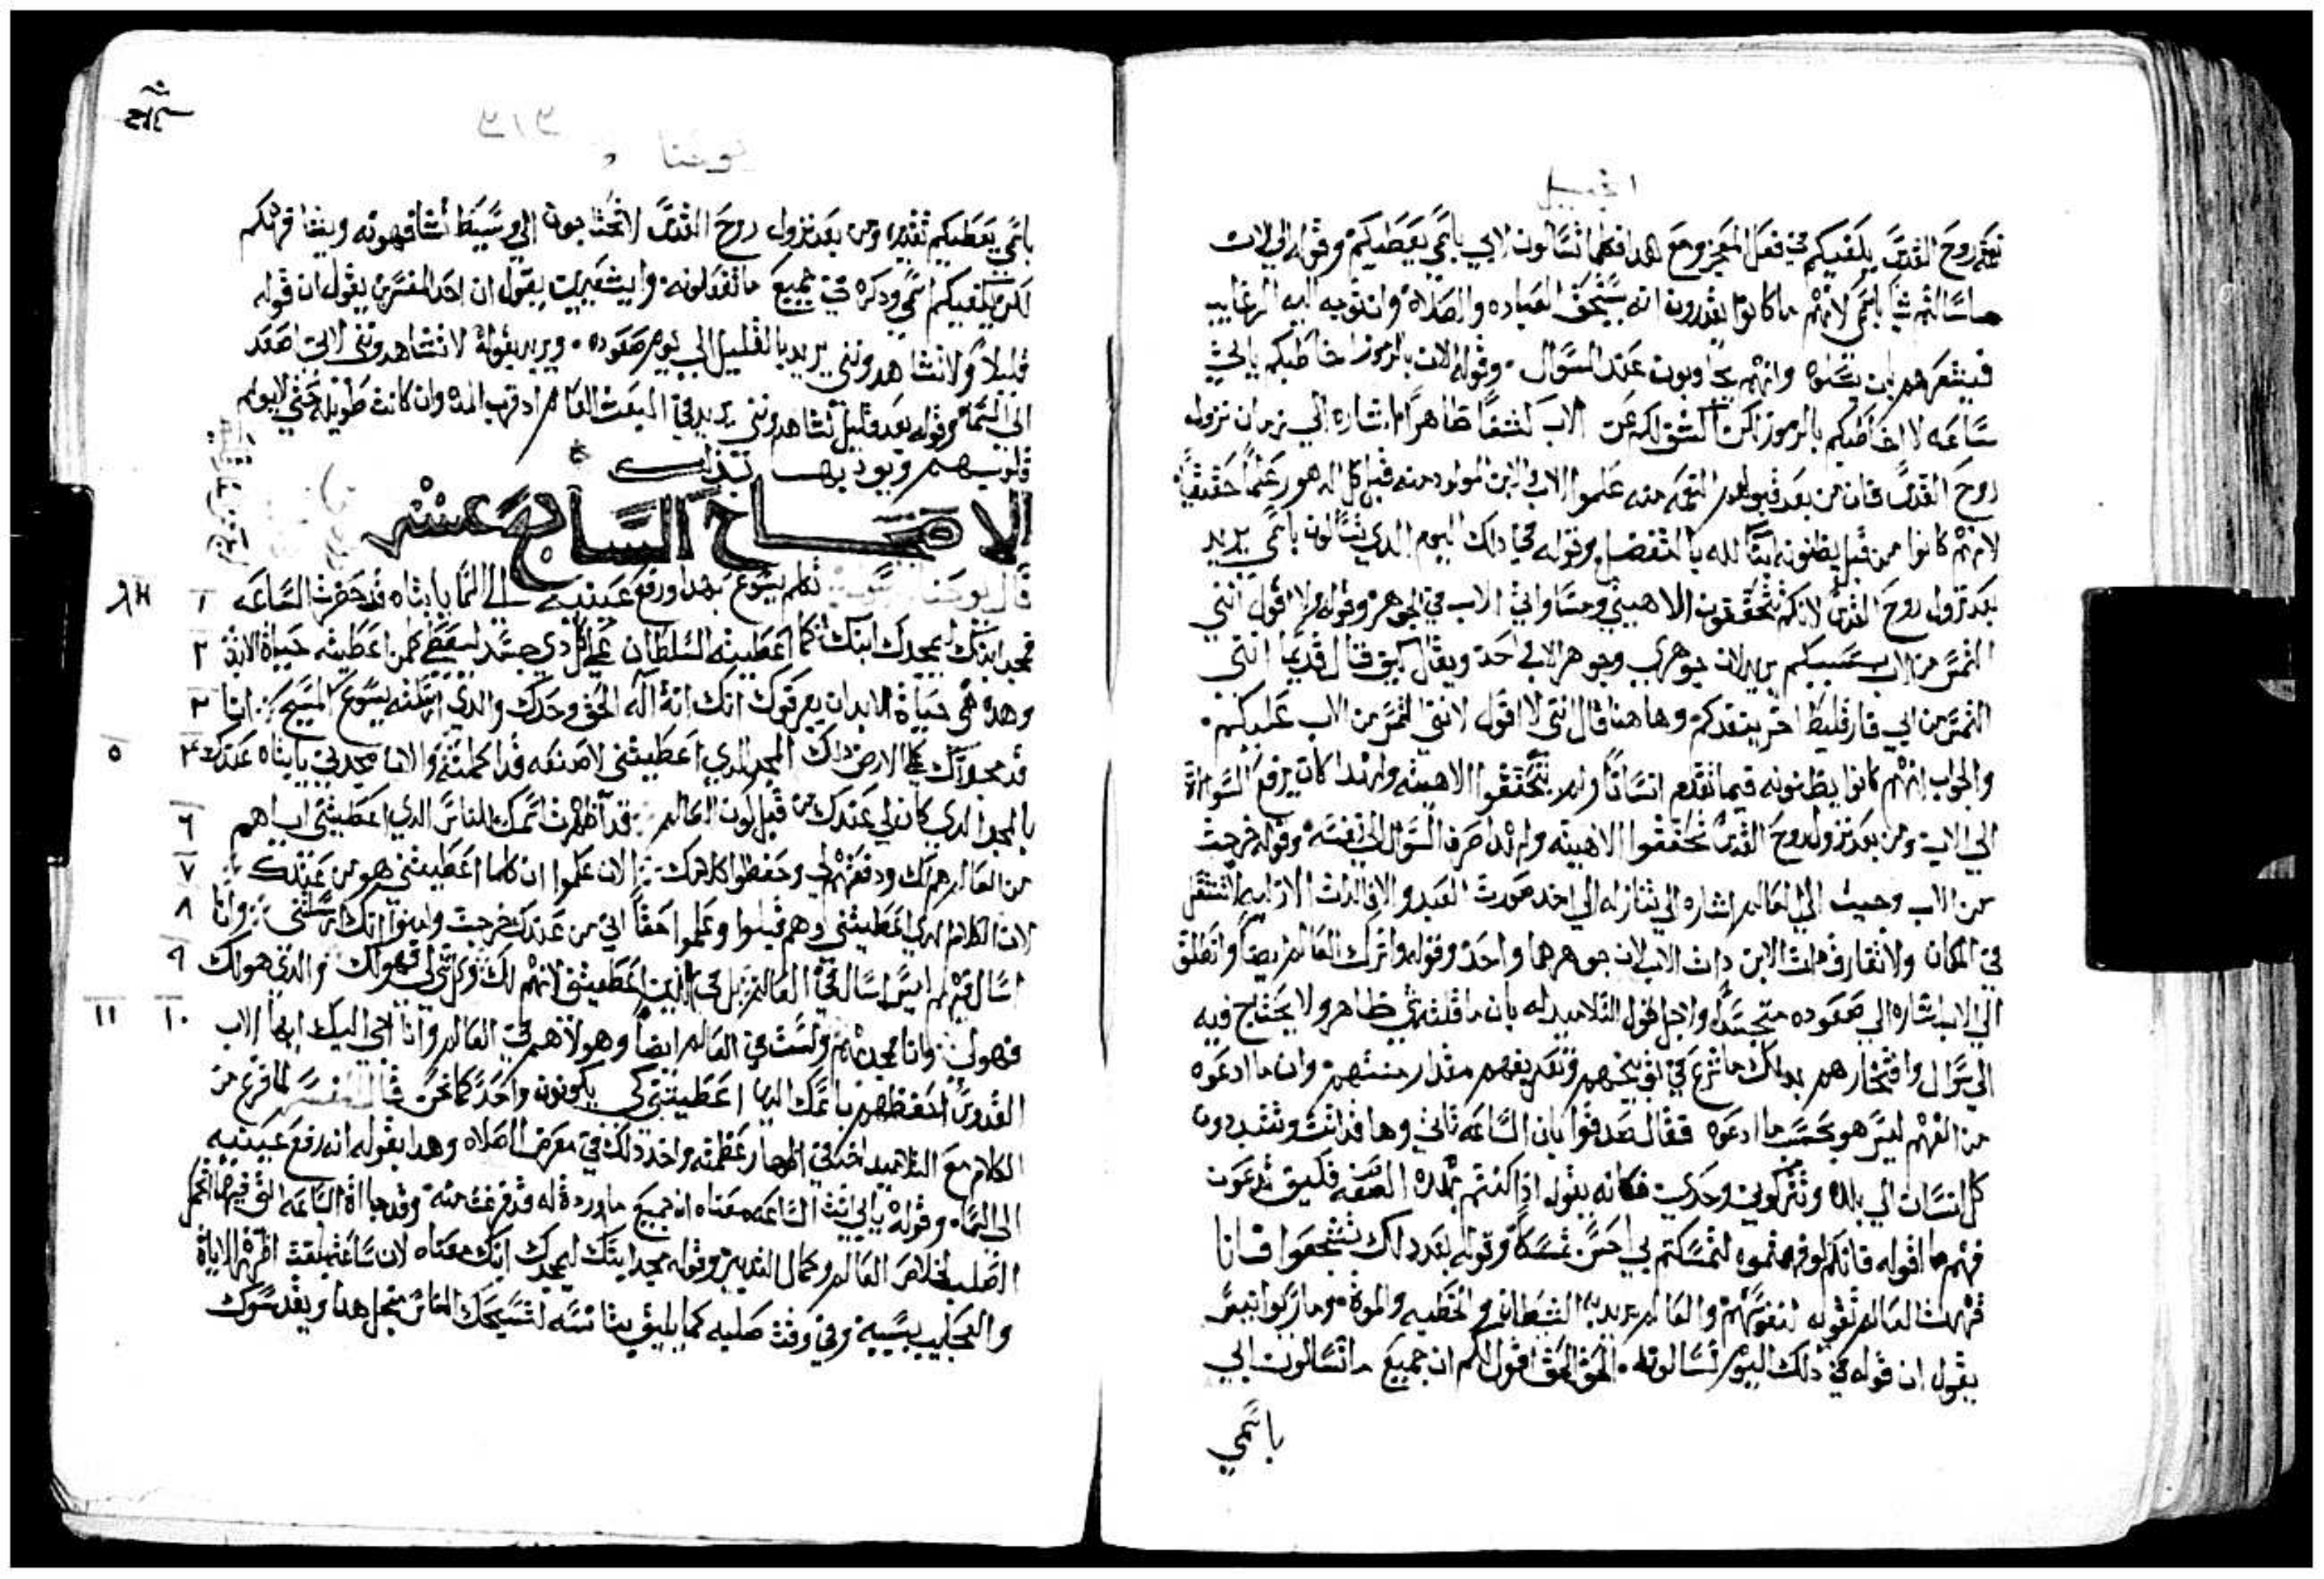 انجيل
روح القدس يكفيكم في فعل المعجز ومع هدا فكلما تسالون الاب باسمي يعطيكم وقوله الي الان
ما سالتم شيا باسمي لانهم ما كانوا يقدرون انه يستحق العباده والصلاة وان تتوجه اليه الرغايب
فيشعرهم بان وانهم يجاوبون عند السوال. وقوله الان بالرموز اخاطبكم ياتي
ساعه لا اخاطبكم بالرموز لكن اكشف لكم عن الاب كشفا ظاهرا اشاره الي زمان نزول
روح القدس فان من بعد قبولهم النعمه منه علموا الاب والابن المولود منه قبل كل الدهور علما حقيقيا
لانهم كانوا من قبل يظنونه ابنا لله بالتفضل وقوله في دلك اليوم الدي تسالون باسمي يريد
بعد نزول روح القدس لانكم تتحققون الاهيتي ومساواتي الاب في الجوهر وقوله ولا اقول انني
التمس من الاب بسببكم يريد لان جوهري وجوهر الاب احد ويقال كيف قال قديما انني
التمس من ابي فارقليط اخر ينفدكم وهاهنا قال انني لا اقول لانني التمس من الاب عليكم.
والجواب انهم كانوا يظنونه فيما تقدم انسانا ولم يتحققوا الاهيته ولهدا كان يرفع السوال
الي الاب ومن بعد نزول روح القدس تحققوا الاهيته ولهدا صرف السوال الي نفسه وقوله خرجت
من الاب وجيت الي العالم اشاره الي تنازله الي اخد صورت العبد والا فالدات الازليه لا تنتقل
في المكان ولا تفارق دات الابن دات الاب لان جوهرهما واحد وقوله واترك العالم ايضا وانطلق
الي الاب اشاره الي صعوده متجسدا ولاجل قول التلاميد له بان ما قلته شي ظاهر ولا يحتاج فيه
الي سوال وافتخارهم بدلك ما شرع في توبيخهم وتعريفهم مقدار منتهم وان ما ادعوه
من الفهم ليس هو بحسب ما ادعوه فقال صدقوا بان الساعه تاتي وها قد اتت وتتبددون
كل انسان الي بلده وتتركوني وحدي فكانه يقول اذا كنتم بهده الصفه فكيف تدعون
فهم ما اقوله فانكم لو فهمتموه لتمسكتم بي احسن تمسكا وقوله بعد دلك تشجعوا فانا
قهرت العالم تقوله لنفوسهم والعالم يريد به الشيطان والخطيه والموت.
يقول ان قوله في دلك اليوم تسالونه. الحق الحق اقول لكم ان جميع ما تسالون ابي
باسمي
يوحنا
باسمي يعطيكم ومن بعد نزول روح القدس لا تحتاجون الي وسيط
لكن يكفيكم اسمي ودكره في جميع ما تفعلونه. يقول ان احد المفسرين يقول ان قوله
قليلا ولا تشاهدونني يريد بالقليل الي يوم صعوده. ويريد بقوله لا تشاهدونني لاني اصعد
الي السماء وقوله بعد قليل تشاهدونني يريد في البعث العام اد قرب المده وان كانت طويله حتي لا يولم
قلوبهم ويوديها بدلك
الاصحاح السابع عشر
قال يوحنا تكلم يسوع بهدا ورفع عينيه الي السما يا ابتاه قد حضرت الساعه ١
فمجد ابنك ليمجدك ابنك كما اعطيته السلطان علي كل دي جسد ليعطي كلمن اعطيته حياة الابد ٢
وهده هي حياة الابد ان يعرفوك انك انت اله الحق وحدك والدي ارسلته يسوع المسيح. انا ٣
قد مجدتك علي الارض دلك العمل الدي اعطيتني لاصنعه قد اكملته والان مجدني يا ابتاه عندك ٤ ٥
بالمجد الدي كان لي عندك من قبل كون العالم. قد اظهرت اسمك للناس الدي اعطيتني اياهم ٦
من العالم هم لك ودفعتهم لي وحفظوا كلامك. الان علموا ان كلما اعطيتني هو من عندك ٧
لان الكلام الدي اعطيتني وهم قبلوا وعلموا حقا اني من عندك خرجت وامنوا انك ارسلتني. وانا ٨
اسال فيهم ليس اسال في العالم بل في الدين اعطيتني لانهم لك وكل شي لي فهو لك والدي هو لك ٩
فهو لي وانا ممجد بهم ولست في العالم ايضا وهولاهم في العالم وانا اتي اليك ايها الاب ١٠ ١١
القدوس احفظهم باسمك الدي اعطيتني كي يكونون واحدا كما نحن قال المفسر لما فرغ من
الكلام مع التلاميد اخد في اظهار عظمته واخد دلك في معرض الصلاه وهدا بقوله انه رفع عينيه
الي السماء وقوله يا ابي اتت الساعه معناه ان جميع ما اردته له قد فرغت منه وقد جات الساعه التي فيها
الصلب لخلاص العالم وكمال التدبير وقوله مجد ابنك ليمجدك ابنك معناه لان
وفي وقت صلبه كما يليق لتسبحك الناس من اجل هدا ويقدسوك